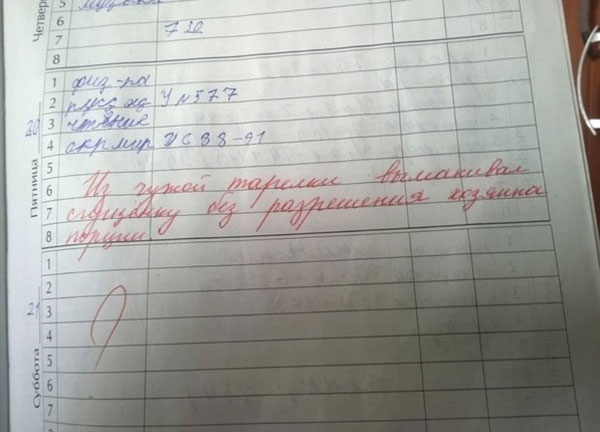 Четвер
5 музыка
6
7 730
8
1 физ-ра
2 У N577
3 чтение
4 окр мир УС 88-91
5
6 Из чужой тарелки вымакивал
7 сгущёнку без разрешения хозяина
8 порции
20
Пятница
1
2
3
4
5
6
7
8
21
Суббота